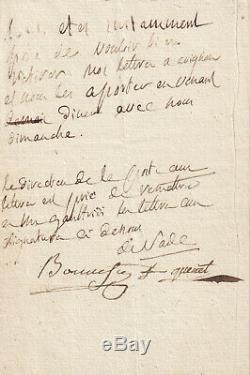 et instamment
prié de vouloir bien
retirer nos lettres a avignon
et nous les apporter en venant
diner avec nous
dimanche.
La direction de la poste aux
lettres est prié de remettre
a Mr les lettres aux
signatures ci dessous
de Sade
Quenet